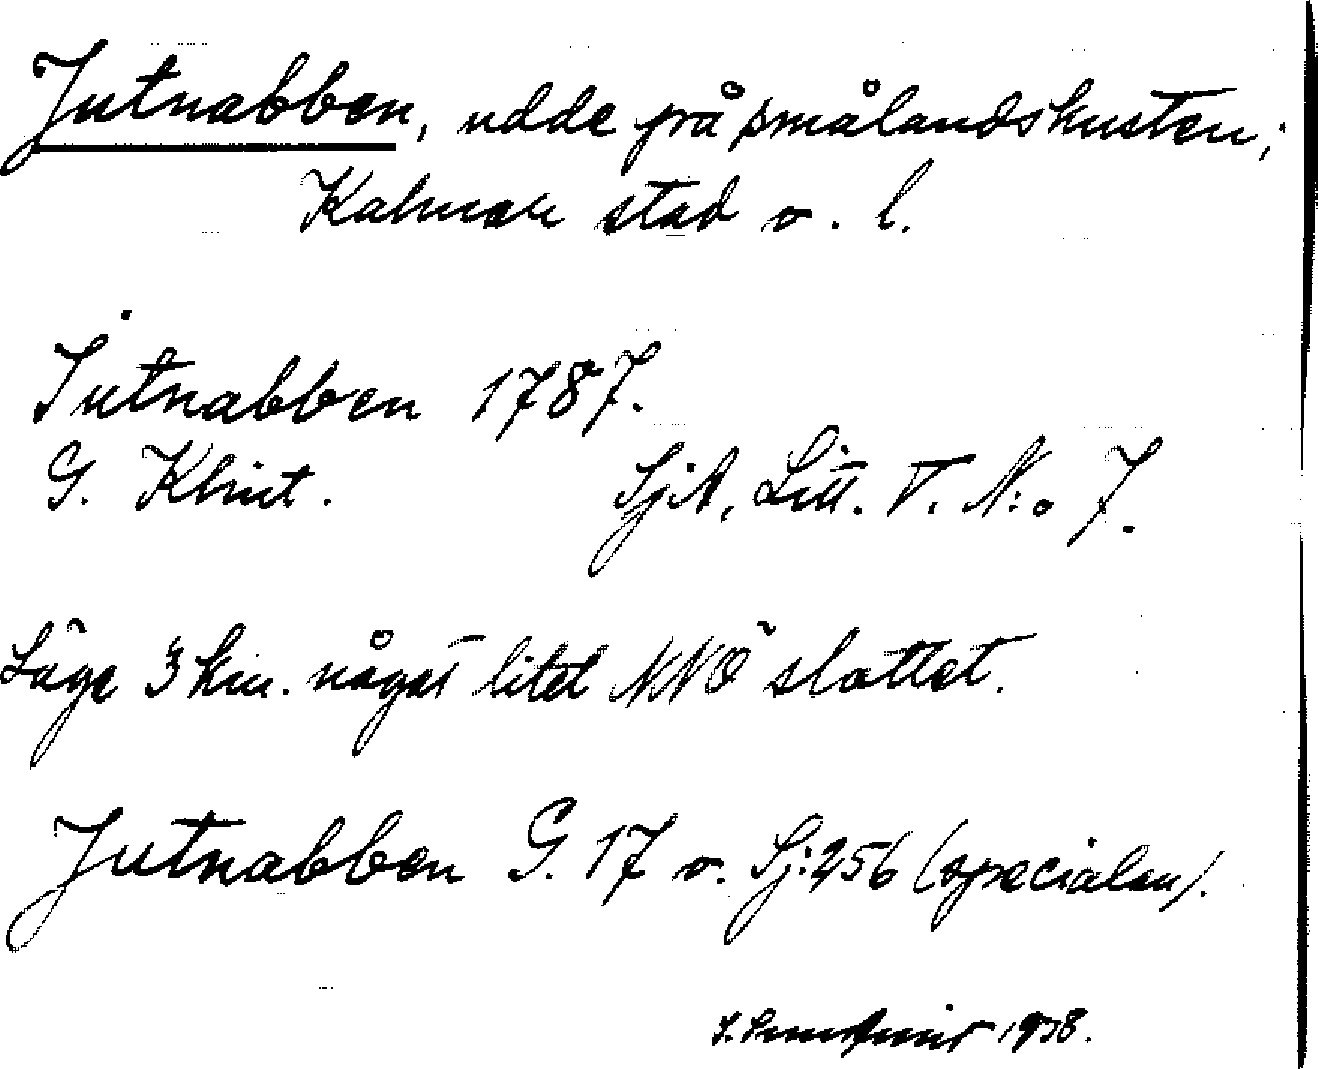 Jutnabben, udde på smålandskusten;
Kalmar stad o. l.
Jutnabben 1787.
G. Klint. SjA, Litt. V. N:o 7.
Läge 3 km. något litet NNÖ slottet.
Jutnabben G. 17 o. Sj:256 (specialen).
1938.